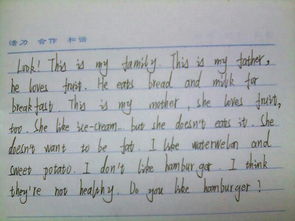 活力 合作 和谐
Look! This is my family. This is my father,
he loves fruit. He eats bread and milk for
breakfast. This is my mother, she loves fruit,
too. She like ice-cream. but she doesn't eats it. She
doesn't want to be fat. I like watermelon and
sweet potato. I don't like hamburger. I think
they're not healthy. Do you like hamburger?